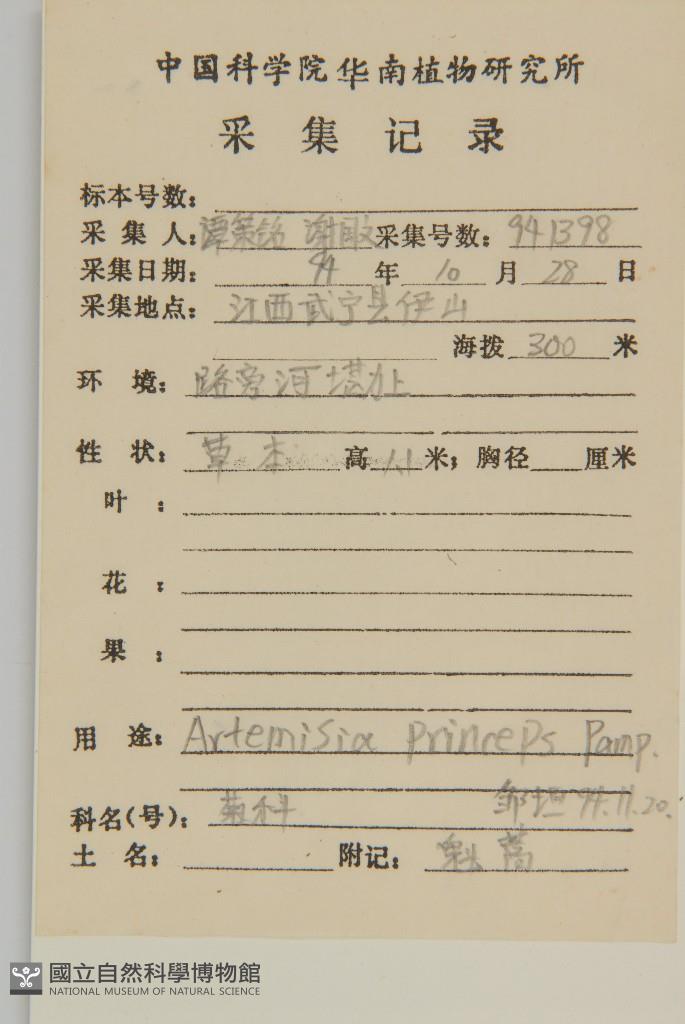 中国科学院华南植物研究所
采集记录
标本号数:
采集人:谭策铭 采集号数:941398
采集日期: 94 年 10 月 28 日
采集地点:江西武宁县伊山
海拨 300 米
环境:路旁河
性状:草本 高 1.1 米; 胸径 厘米
叶:
花:
果:
用途:Artemisia princeps Pamp.
邹垣 94.11.20.
科名(号):菊科
土名: 附记:魁蒿
國立自然科學博物館
NATIONAL MUSEUM OF NATURAL SCIENCE